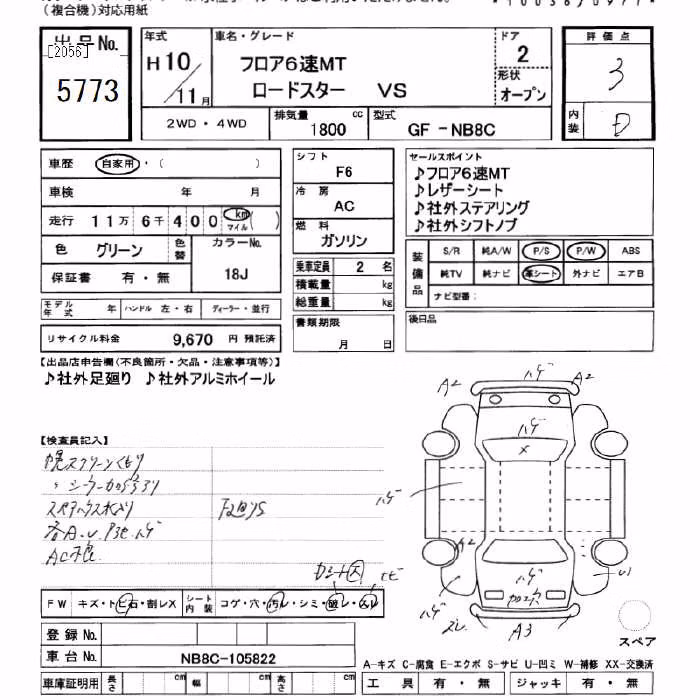 (複合機)対応用紙
出品No.
[2056]
5773
年式
H10/11月
車名・グレード
フロア6速MT
ロードスター VS
ドア
2
形状
オープン
評価点
3
内装
D
2WD・4WD
排気量 1800 cc
型式 GF-NB8C
車歴 自家用・( )
車検 年 月
走行 11万6千400 km マイル( )
色 グリーン
色替
カラーNo.
18J
保証書 有・無
モデル年式 年
ハンドル 左・右
ディーラー・並行
リサイクル料金 9,670 円 預託済
シフト
F6
冷房
AC
燃料
ガソリン
乗車定員 2 名
積載量 kg
総重量 kg
書類期限
月 日
セールスポイント
♪フロア6速MT
♪レザーシート
♪社外ステアリング
♪社外シフトノブ
装備品
S/R 純A/W P/S P/W ABS
純TV 純ナビ 革シート 外ナビ エアB
ナビ型番:
後日品
【出品店申告欄(不良箇所・欠品・注意事項等)】
♪社外足廻り ♪社外アルミホイール
【検査員記入】
幌スクリーンくもり
AC不良
F W キズ・トビ石・割レX
シート内装 コゲ・穴・汚レ・シミ・破レ・スレ
登録No.
車台No. NB8C-105822
車庫証明用 長さ cm 幅 cm 高さ cm
A2 ハゲ A2
ハゲ
X
ハゲ
A2
ハゲ
U1
ハゲ
スレ
A3
スペア
A-キズ C-腐食 E-エクボ S-サビ U-凹ミ W-補修 XX-交換済
工具 有・無 ジャッキ 有・無